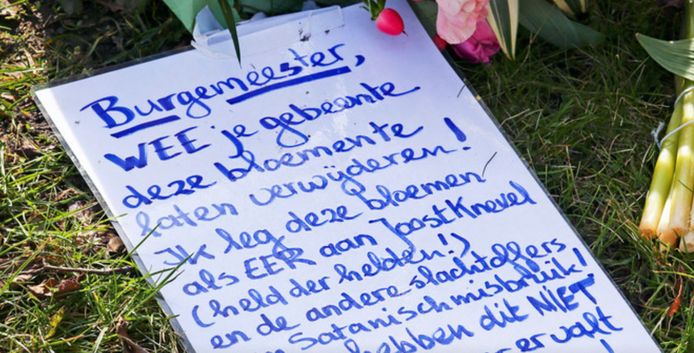 Burgemeester,
WEE je gebeente
deze bloemen te
laten verwijderen!
Ik leg deze bloemen
als EER aan Joost Knevel
(held der helden!)
en de andere slachtoffers
Satanisch misbruik!
hebben dit NIET
er valt